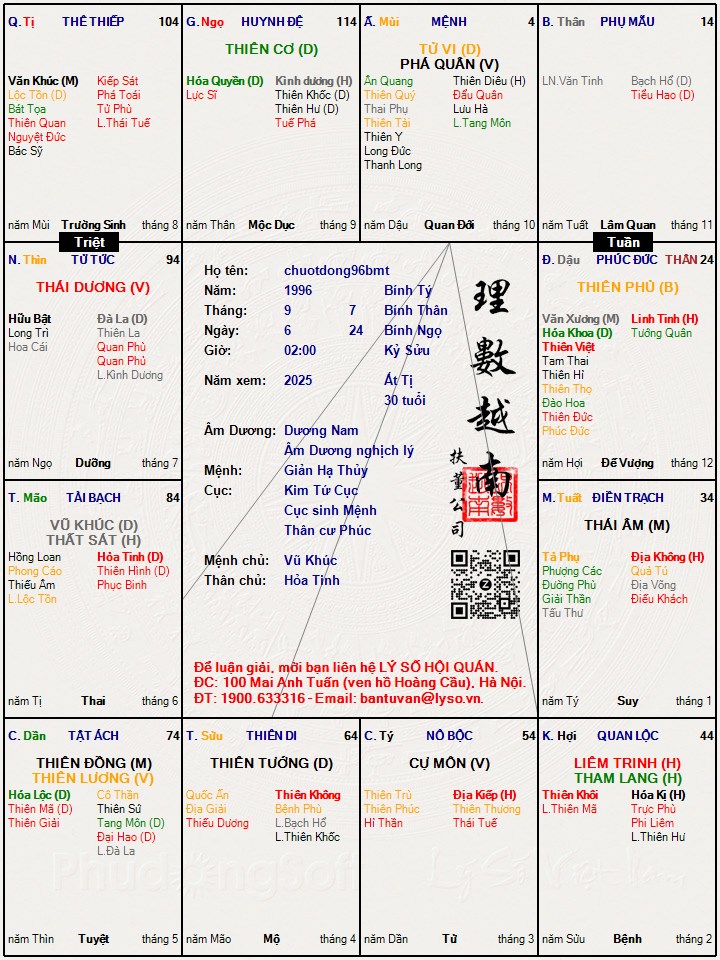 Q. Tị THÊ THIẾP 104
Văn Khúc (M) Kiếp Sát
Lộc Tồn (D) Phá Toái
Bát Tọa Tử Phù
Thiên Quan L.Thái Tuế
Nguyệt Đức
Bác Sỹ
năm Mùi Trường Sinh tháng 8
G. Ngọ HUYNH ĐỆ 114
THIÊN CƠ (D)
Hóa Quyền (D) Kình dương (H)
Lực Sĩ Thiên Khốc (D)
Thiên Hư (D)
Tuế Phá
năm Thân Mộc Dục tháng 9
Ấ. Mùi MỆNH 4
TỬ VI (D)
PHÁ QUÂN (V)
Ân Quang Thiên Diêu (H)
Thiên Quý Đẩu Quân
Thai Phụ Lưu Hà
Thiên Tài L.Tang Môn
Thiên Y
Long Đức
Thanh Long
năm Dậu Quan Đới tháng 10
B. Thân PHỤ MẪU 14
LN.Văn Tinh Bạch Hổ (D)
Tiểu Hao (D)
năm Tuất Lâm Quan tháng 11
Triệt
Tuần
N. Thìn TỬ TỨC 94
THÁI DƯƠNG (V)
Hữu Bật Đà La (D)
Long Trì Thiên La
Hoa Cái Quan Phù
Quan Phủ
L.Kình Dương
năm Ngọ Dưỡng tháng 7
Họ tên: chuotdong96bmt
Năm: 1996 Bính Tý
Tháng: 9 7 Bính Thân
Ngày: 6 24 Bính Ngọ
Giờ: 02:00 Kỷ Sửu
Năm xem: 2025 Ất Tị
30 tuổi
Âm Dương: Dương Nam
Âm Dương nghịch lý
Mệnh: Giản Hạ Thủy
Cục: Kim Tứ Cục
Cục sinh Mệnh
Thân cư Phúc
Mệnh chủ: Vũ Khúc
Thân chủ: Hỏa Tinh
理數越南
扶董公司
Z
Để luận giải, mời bạn liên hệ LÝ SỐ HỘI QUÁN.
ĐC: 100 Mai Anh Tuấn (ven hồ Hoàng Cầu), Hà Nội.
ĐT: 1900.633316 - Email: bantuvan@lyso.vn.
Đ. Dậu PHÚC ĐỨC THÂN 24
THIÊN PHỦ (B)
Văn Xương (M) Linh Tinh (H)
Hóa Khoa (D) Tướng Quân
Thiên Việt
Tam Thai
Thiên Hỉ
Thiên Thọ
Đào Hoa
Thiên Đức
Phúc Đức
năm Hợi Đế Vượng tháng 12
T. Mão TÀI BẠCH 84
VŨ KHÚC (D)
THẤT SÁT (H)
Hồng Loan Hỏa Tinh (D)
Phong Cáo Thiên Hình (D)
Thiếu Âm Phục Binh
L.Lộc Tồn
năm Tị Thai tháng 6
M. Tuất ĐIỀN TRẠCH 34
THÁI ÂM (M)
Tả Phụ Địa Không (H)
Phượng Các Quả Tú
Đường Phù Địa Võng
Giải Thần Điếu Khách
Tấu Thư
năm Tý Suy tháng 1
C. Dần TẬT ÁCH 74
THIÊN ĐỒNG (M)
THIÊN LƯƠNG (V)
Hóa Lộc (D) Cô Thần
Thiên Mã (D) Thiên Sứ
Thiên Giải Tang Môn (D)
Đại Hao (D)
L.Đà La
năm Thìn Tuyệt tháng 5
T. Sửu THIÊN DI 64
THIÊN TƯỚNG (D)
Quốc Ấn Thiên Không
Địa Giải Bệnh Phù
Thiếu Dương L.Bạch Hổ
L.Thiên Khốc
năm Mão Mộ tháng 4
C. Tý NÔ BỘC 54
CỰ MÔN (V)
Thiên Trù Địa Kiếp (H)
Thiên Phúc Thiên Thương
Hỉ Thần Thái Tuế
năm Dần Tử tháng 3
K. Hợi QUAN LỘC 44
LIÊM TRINH (H)
THAM LANG (H)
Thiên Khôi Hóa Kị (H)
L.Thiên Mã Trực Phù
Phi Liêm
L.Thiên Hư
năm Sửu Bệnh tháng 2